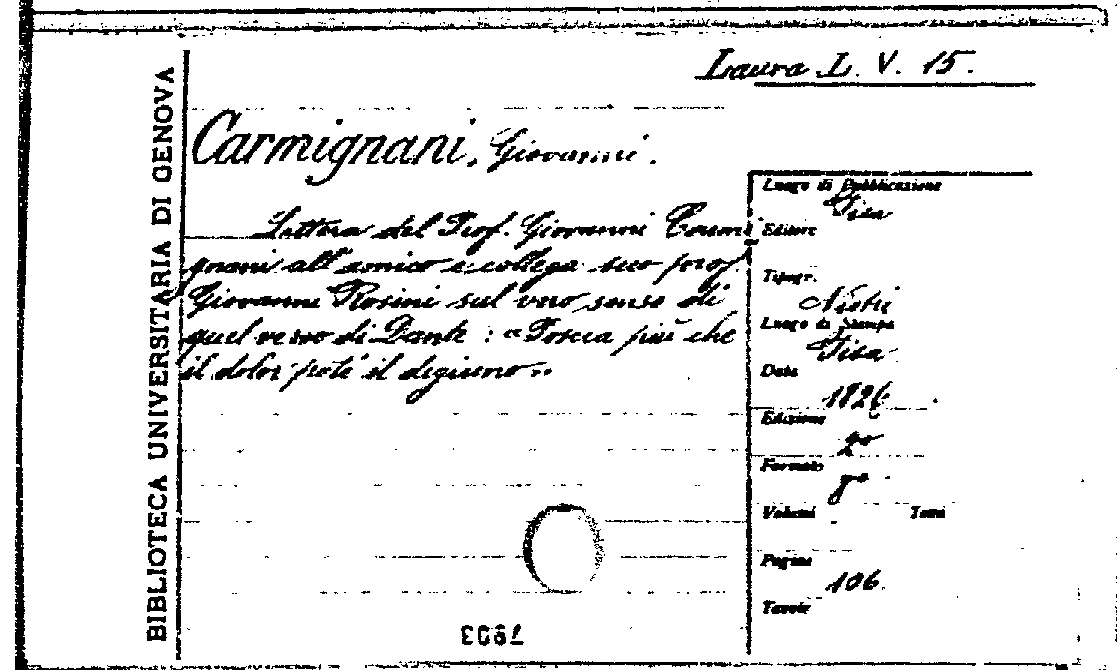 Laura L. V. 15.
BIBLIOTECA UNIVERSITARIA DI GENOVA
Carmignani, Giovanni.
Lettera del Prof. Giovanni Carmi
gnani all'amico e collega suo prof.
Giovanni Rosini sul vero senso di
quel verso di Dante: "Poscia più che
il dolor poté il digiuno"
Luogo di Pubblicazione
Pisa
Editore
Tipogr.
Nistri
Luogo di Stampa
Pisa
Data
1826
Edizione
2ª
Formato
8°
Volumi Tomi
Pagine
106
Tavole
7903